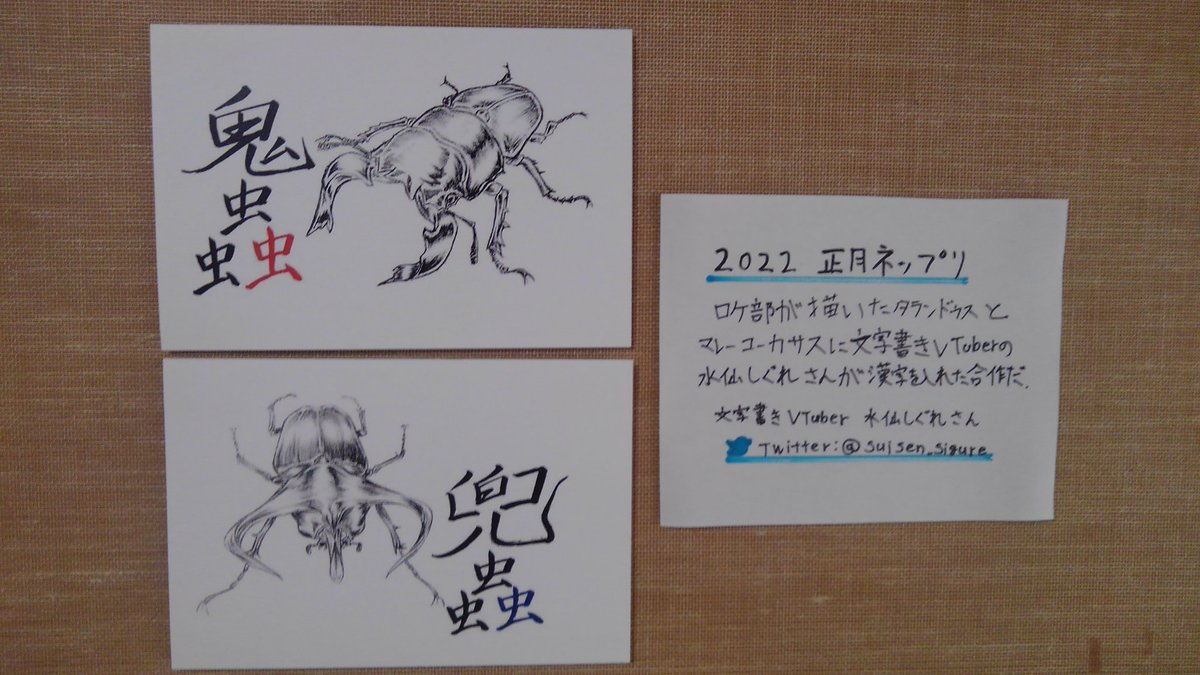 鬼
虫
虫虫
兜
虫
虫虫
2022 正月ネップリ
ロケ部が描いたタランドゥスと
マレーコーカサスに文字書きVTuberの
水仙しぐれさんが漢字を入れた合作だ.
文字書きVTuber 水仙しぐれさん
Twitter:@suisen_sigure